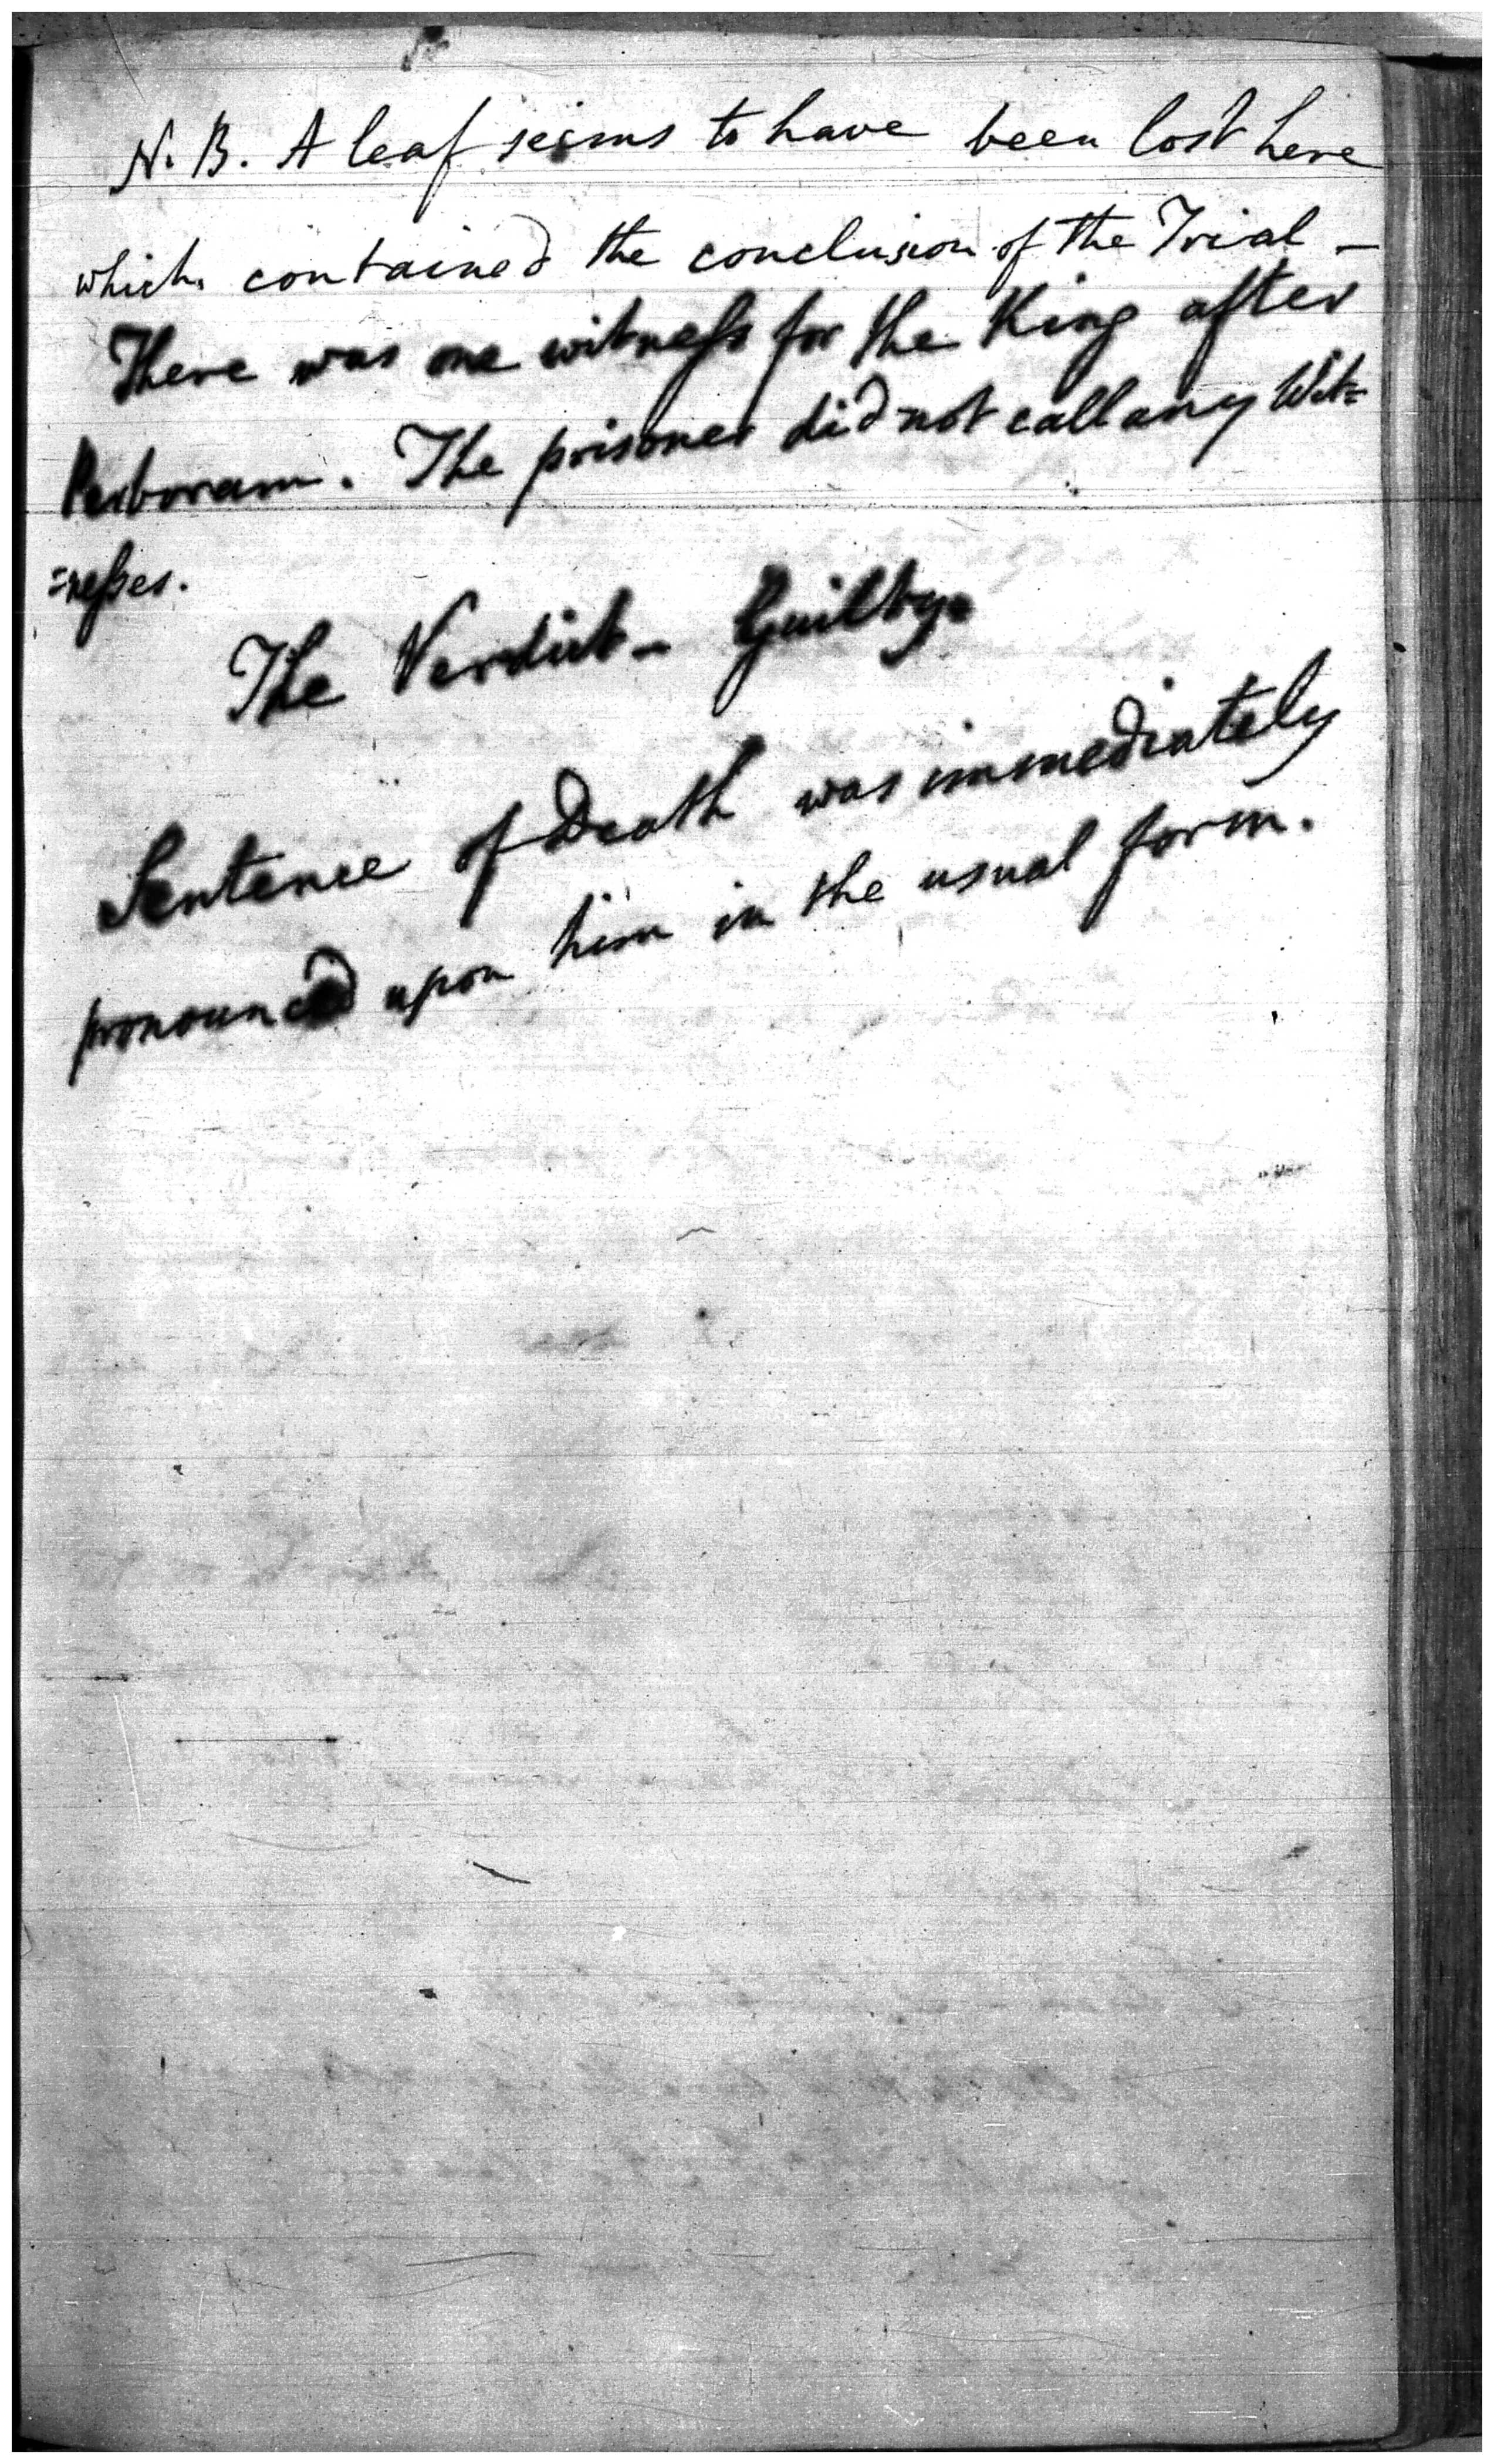 N. B. A leaf seems to have been lost here
which contained the conclusion of the Trial –
There was one witneſs for the King after
Parboram. The prisoner did not call any Wit=
=neſses.
The Verdict – Guilty.
Sentence of Death was immediately
pronounced upon him in the usual form.